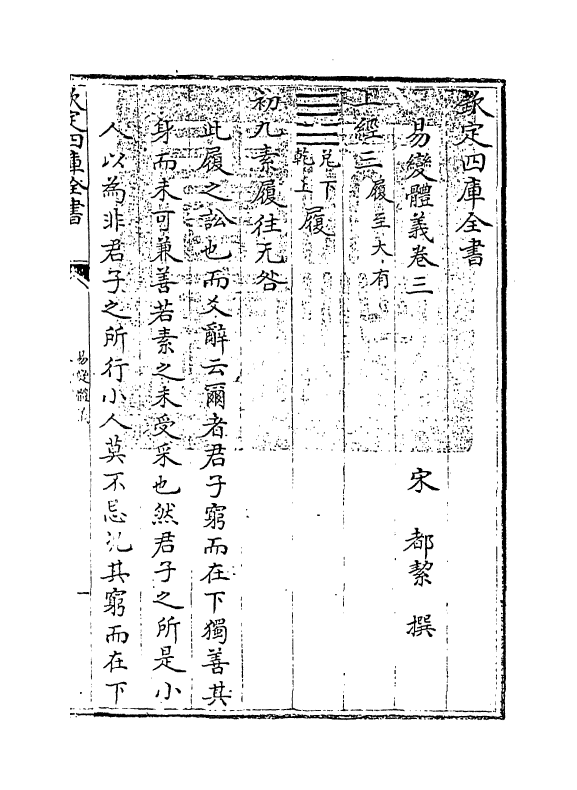 欽定四庫全書
易變體義卷三
宋 都絜 撰
上經三履至大有
䷉兌下乾上 履
初九素履往无咎
此履之訟也而爻辭云爾者君子窮而在下獨善其
身而未可兼善若素之未受采也然君子之所是小
人以為非君子之所行小人莫不忌況其窮而在下
欽定四庫全書
易變體義
一